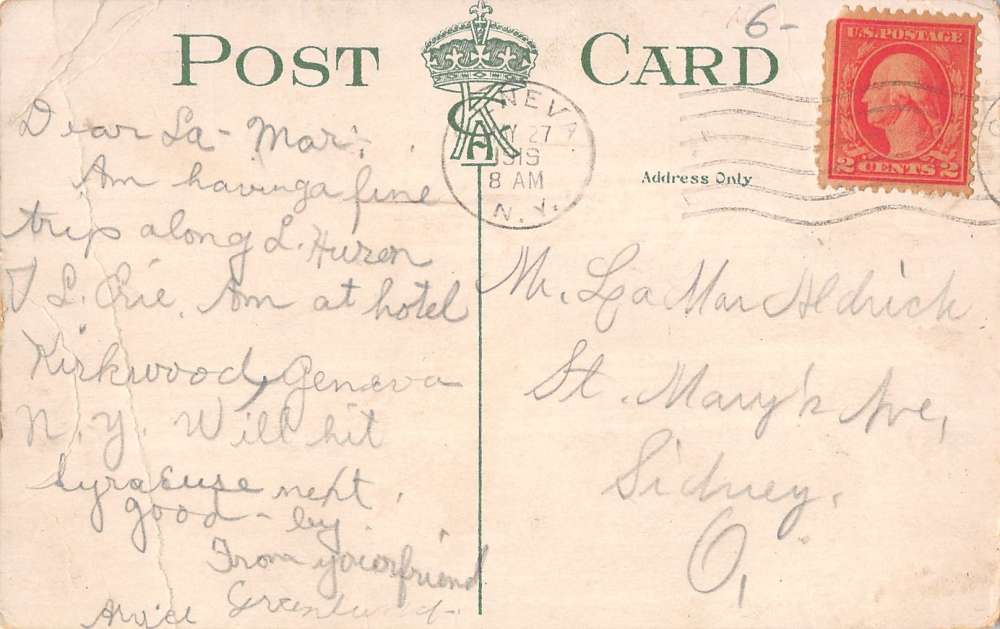 POST CARD
6-
U.S. POSTAGE
2 CENTS 2
NEVA
Y 27
1919
8 AM
N. Y.
Address Only
Dear La-Mar;
Am having a fine
trip along L. Huron
& L. Erie. Am at hotel
Kirkwood, Geneva
N. Y. Will hit
Syracuse next.
good-by.
From your friend
Mr. La Mar Aldrich
St. Mary's Ave,
Sidney,
O,